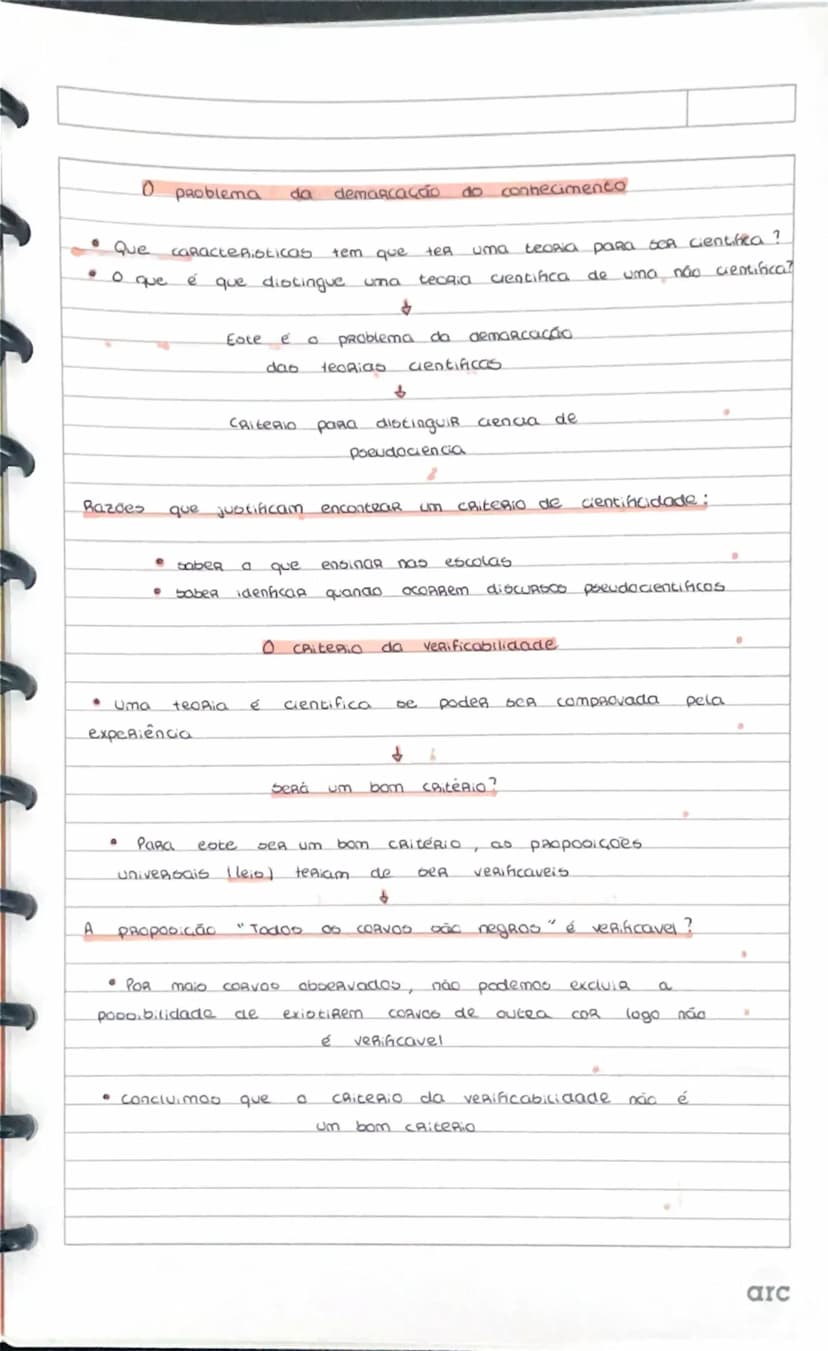 O problema da demarcação do conhecimento
• Que caracteristicas tem que ter uma teoria para ser cientifica?
• O que é que distingue uma teoria cientifica de uma não cientifica?
↓
Este é o problema da demarcação
das teorias cientificas
↓
Criterio para distinguir ciencia de
pseudociencia
Razões que justificam encontrar um criterio de cientificidade:
• saber o que ensinar nas escolas
• saber idenficar quando ocorrem discursos pseudocientificos
O criterio da verificabilidade
• Uma teoria é cientifica se poder ser comprovada pela
experiência
↓
será um bom critério?
• Para este ser um bom critério, as proposições
universais (leis) teriam de ser verificaveis
↓
A proposição "Todos os corvos são negros" é verificavel?
• Por mais corvos observados, não podemos excluir a
possibilidade de existirem corvos de outra cor logo não
é verificavel
• Concluimos que o criterio da verificabilidade não é
um bom criterio
arc